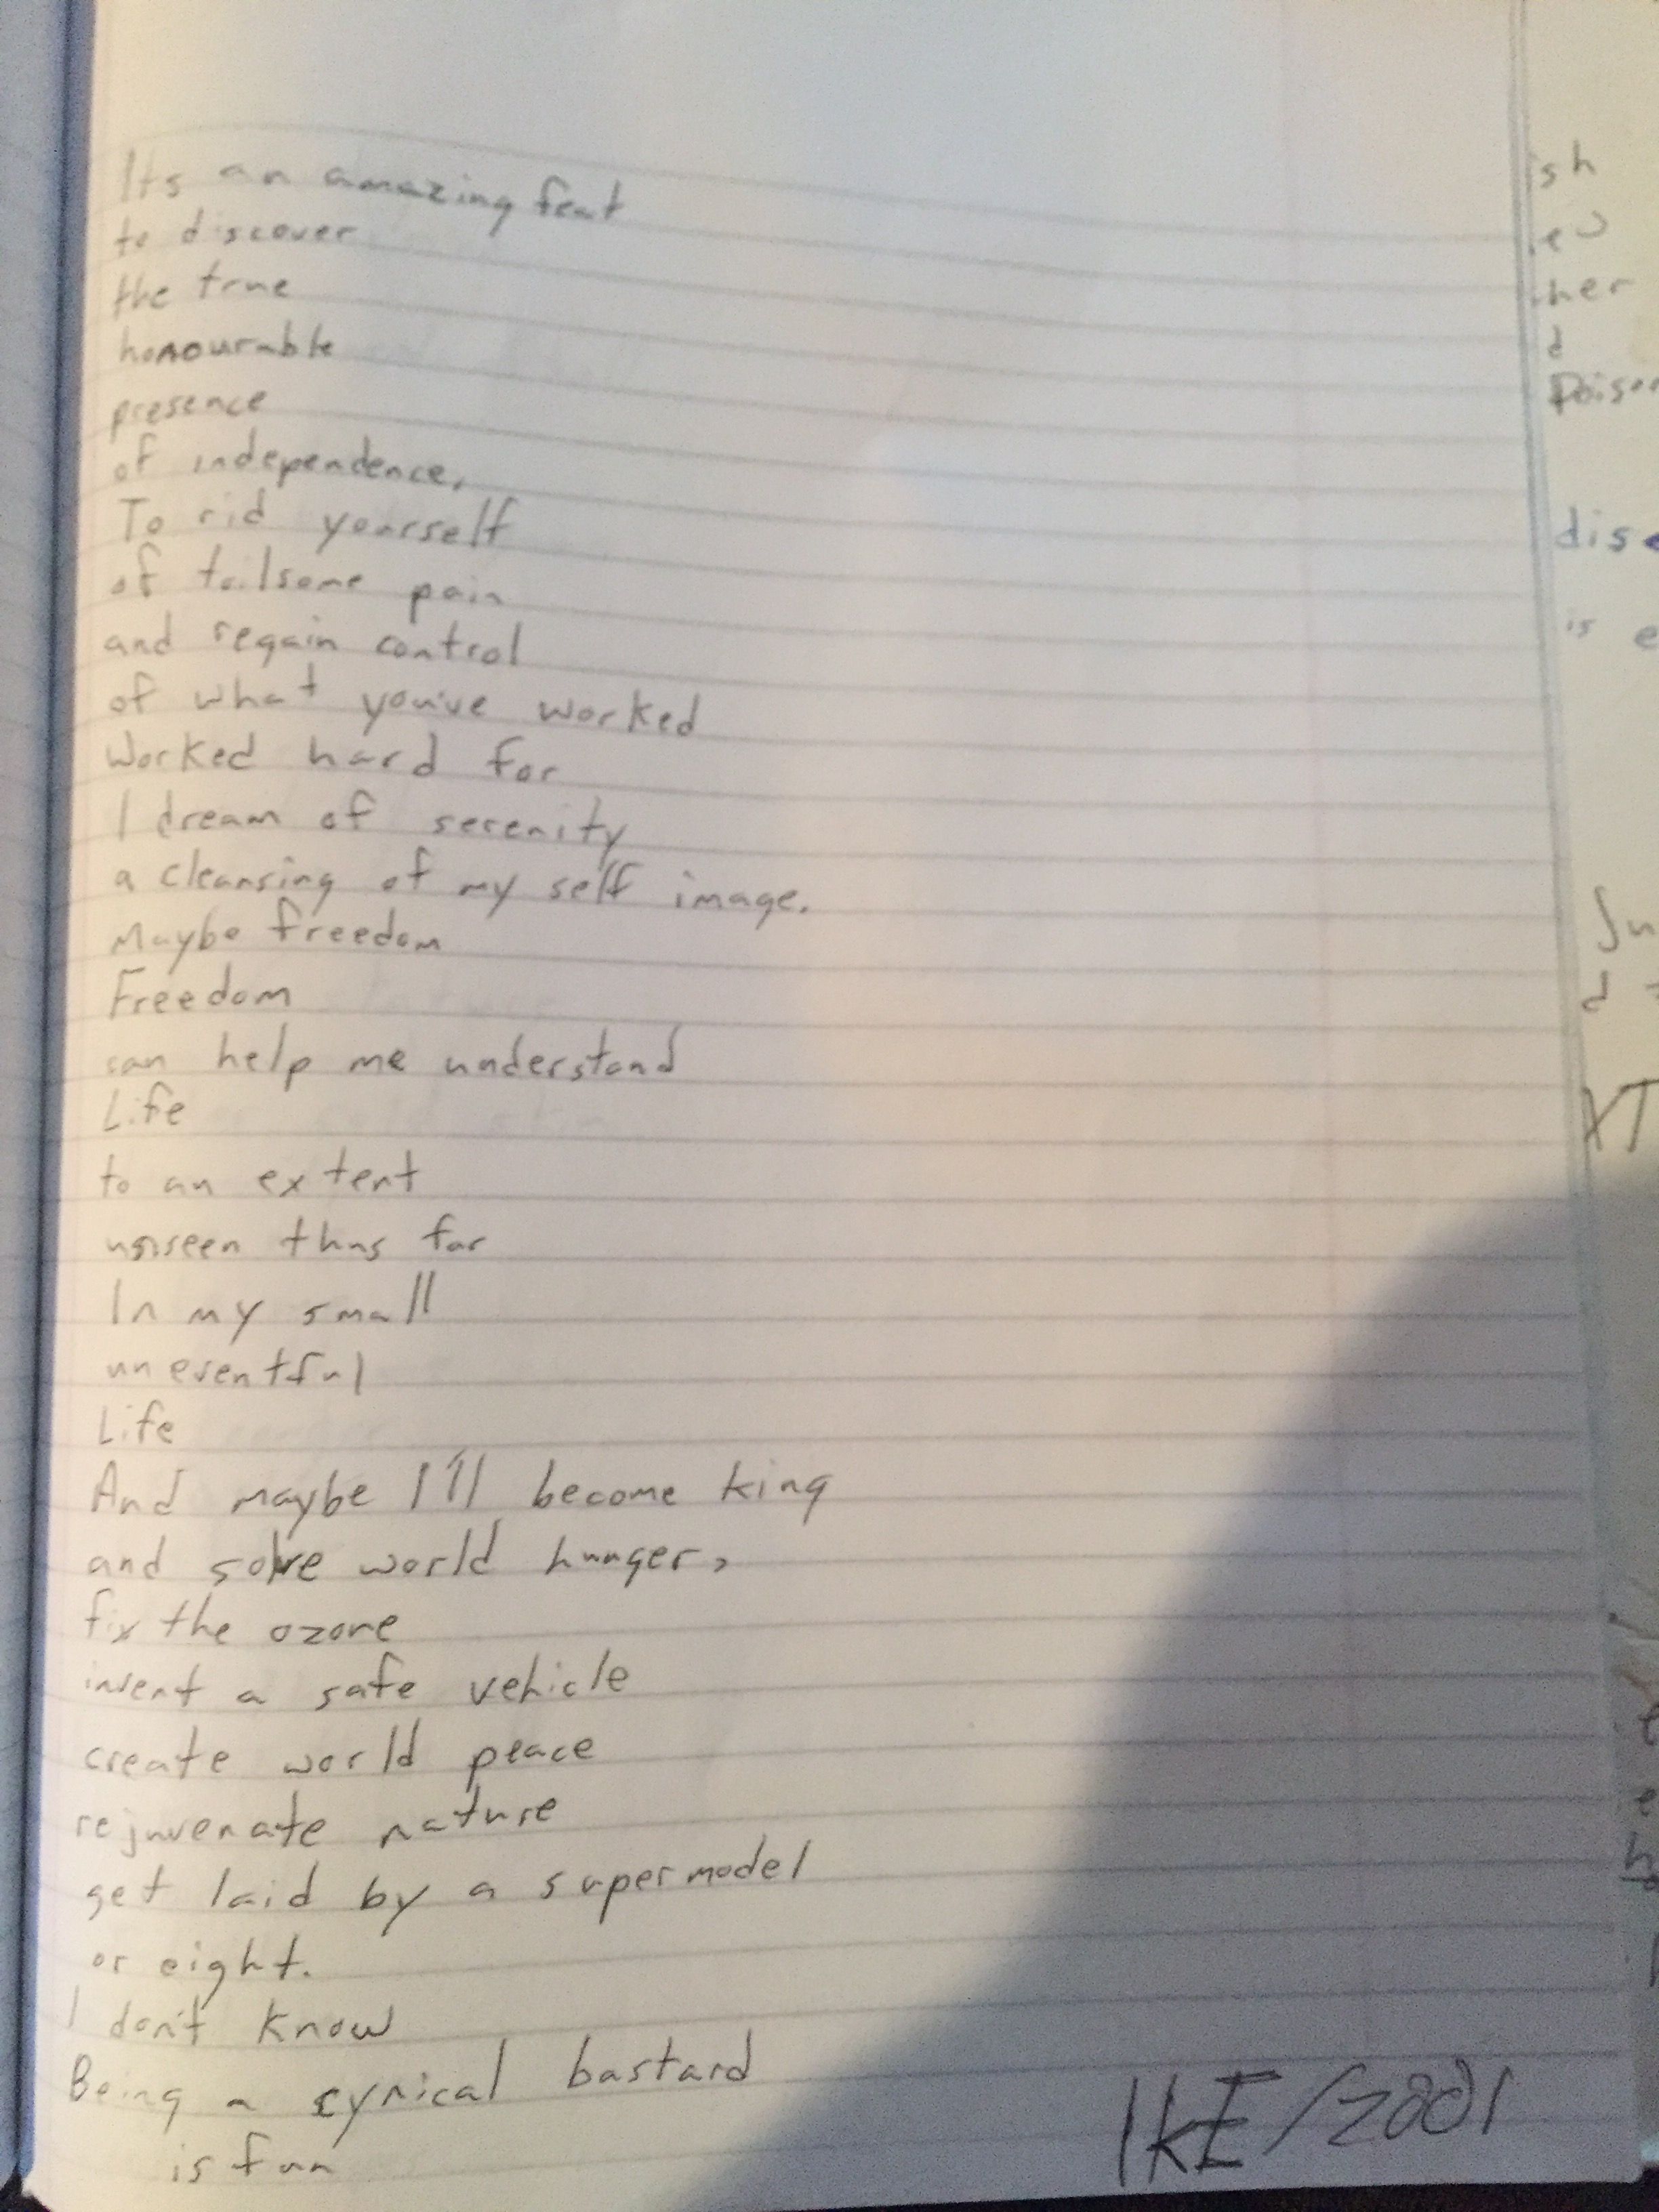 Its an amazing feat
to discover
the true
honourable
presence
of independence,
To rid yourself
of toilsome pain
and regain control
of what you've worked
Worked hard for
I dream of serenity
a cleansing of my self image.
Maybe freedom
Freedom
can help me understand
Life
to an extent
unseen thus far
In my small
uneventful
Life
And maybe I'll become king
and solve world hunger,
fix the ozone
invent a safe vehicle
create world peace
rejuvenate nature
get laid by a supermodel
or eight.
I don't know
Being a cynical bastard
is fun
IKE/2001
ish
her
d
Poison
is e
XT